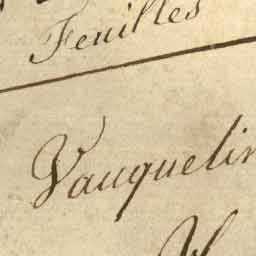 Feuilles
Vauquelin